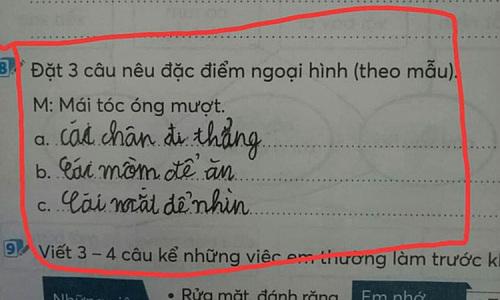 8 Đặt 3 câu nêu đặc điểm ngoại hình (theo mẫu).
M: Mái tóc óng mượt.
a. Cái chân đi thẳng
b. Cái mồm để ăn
c. Cái mắt để nhìn
9 Viết 3 – 4 câu kể những việc em thường làm trước
• Rửa mặt, đánh răng
Em nhớ